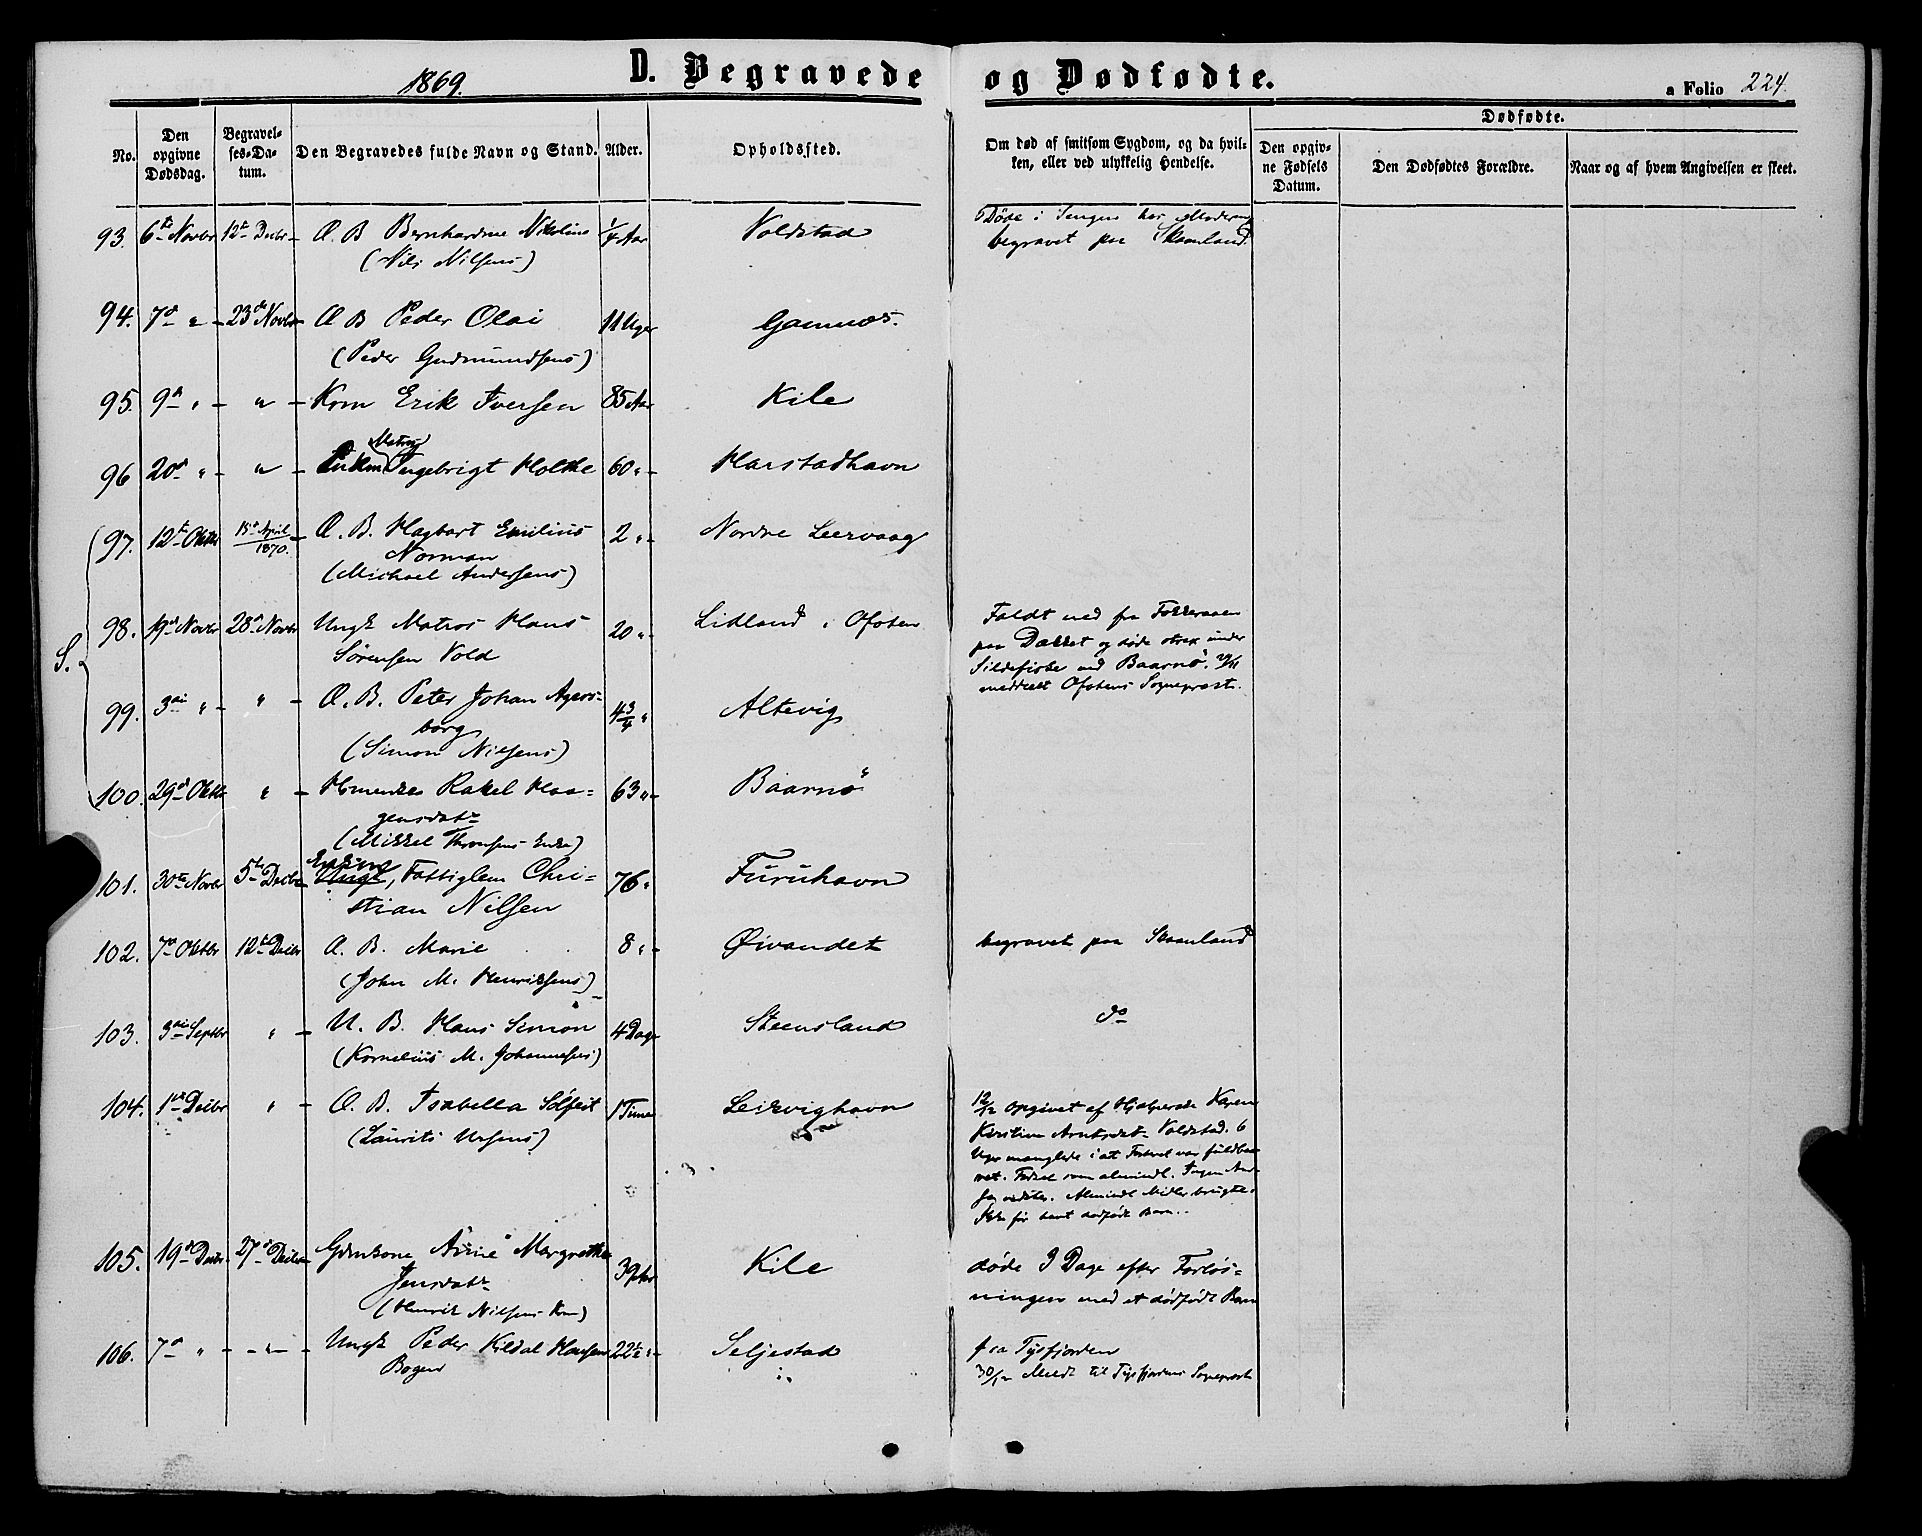 1869.
D. Begravede og Dødfødte.
a Folio 224.
No.
Den opgivne Dødsdag.
Begravelses-Datum.
Den Begravedes fulde Navn og Stand.
Alder.
Opholdssted.
Om død af smitsom Sygdom, og da hvilken, eller ved ulykkelig Hendelse.
Dødfødte.
Den opgivne Fødsels Datum.
Den Dødfødtes Forældre.
Naar og af hvem Angivelsen er skeet.
93. 6te Novbr 12te Decbr Æ. B Bernhardine Nikoline 1/4 Aar Voldstad Døde i Sengen hos Moderen
(Nils Nilsens) begravet paa Skaanland
94. 7de " 23de Novbr Æ B Peder Olai 11 Uger Gamnæs.
(Peder Gudmundsens)
95. 9de " " Kom Erik Iversen 85 Aar Kile
Matros
96 20de " " Enkm Ingebrigt Holthe 60 " Harstadhavn
97. 12te Oktbr 15de April 1870. Æ. B. Hagbart Emilius 2 " Nordre Leervaag
Norman
(Michael Andersens)
S.
98. 19de Novbr 28de Novbr Ungk Matros Hans 20 " Lidland i Ofoten Faldt ned fra Fokkeraaen
Sørensen Vold paa Dækket og døde strax under
Sildefiske ved Baarnø.
meddeelt Ofotens Sognepræst.
99. 3die " " Æ. B. Peter Johan Agers- 4 3/4 " Altevig
borg
(Simon Nilsens)
100. 29de Oktbr " Hmendes Rakel Haa- 63 " Baarnø
gensdatr
(Mikkel Thronsens Enke)
Enkem
101. 30te Novbr 5te Decbr Ungk, Fattiglem Chri- 76 " Furuhavn
stian Nilsen
102. 7de Oktbr 12te Decbr Æ. B. Marie 8 " Øivandet begravet paa Skaanland
(John M. Henriksens)
103. 3die Septbr " U. B. Hans Simon 4 Dage Steensland do
(Kornelius M. Johannesens)
104. 1ste Decbr " Æ. B. Isabella Solfeit 1 Time Leervighavn 12/12 opgivet af Hjelperske Karen
(Laurits Ursens) Kirstine Arntsdatr Voldstad. 6
Uger manglede i at Fosteret var fuldbaa-
ret. Fødsel som almindl. Ingen
Almindl Midler brugte.
Ikke før havt dødfødt Barn.
105. 19de Decbr 27de Decbr Gdmkone Anne Margrethe 39 Aar Kile døde 3 Dage efter Forløs-
Jensdatr ningen med et dødfødt Barn
(Henrik Nilsens Kone)
106. 7de " " Ungk Peder Kildal Hansen 22 1/2 " Seljestad fra Tysfjorden
Bogen 30/12 Meldt til Tysfjordens Sognepræst